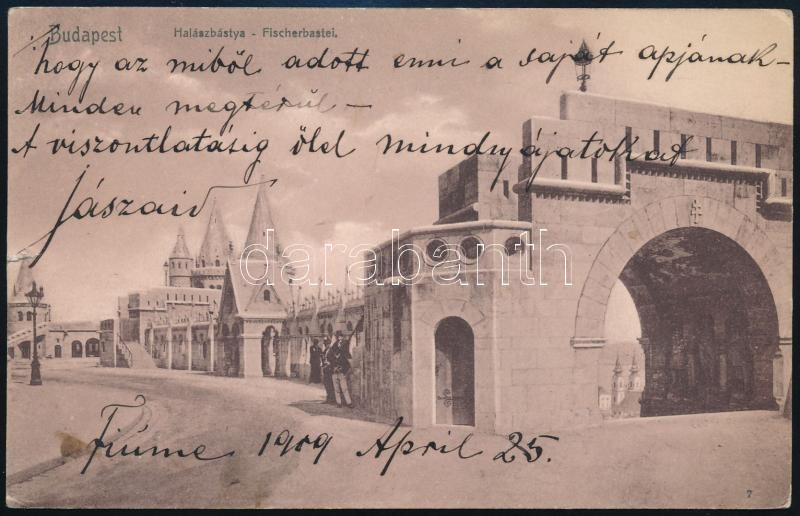 Budapest
Halászbástya - Fischerbastei.
hogy az miből adott enni a saját apjának-
Minden megtérül -
A viszontlatásig ölel mindnyájatokat
Jászai
darabanth
Fiúme 1909 April 25.
7